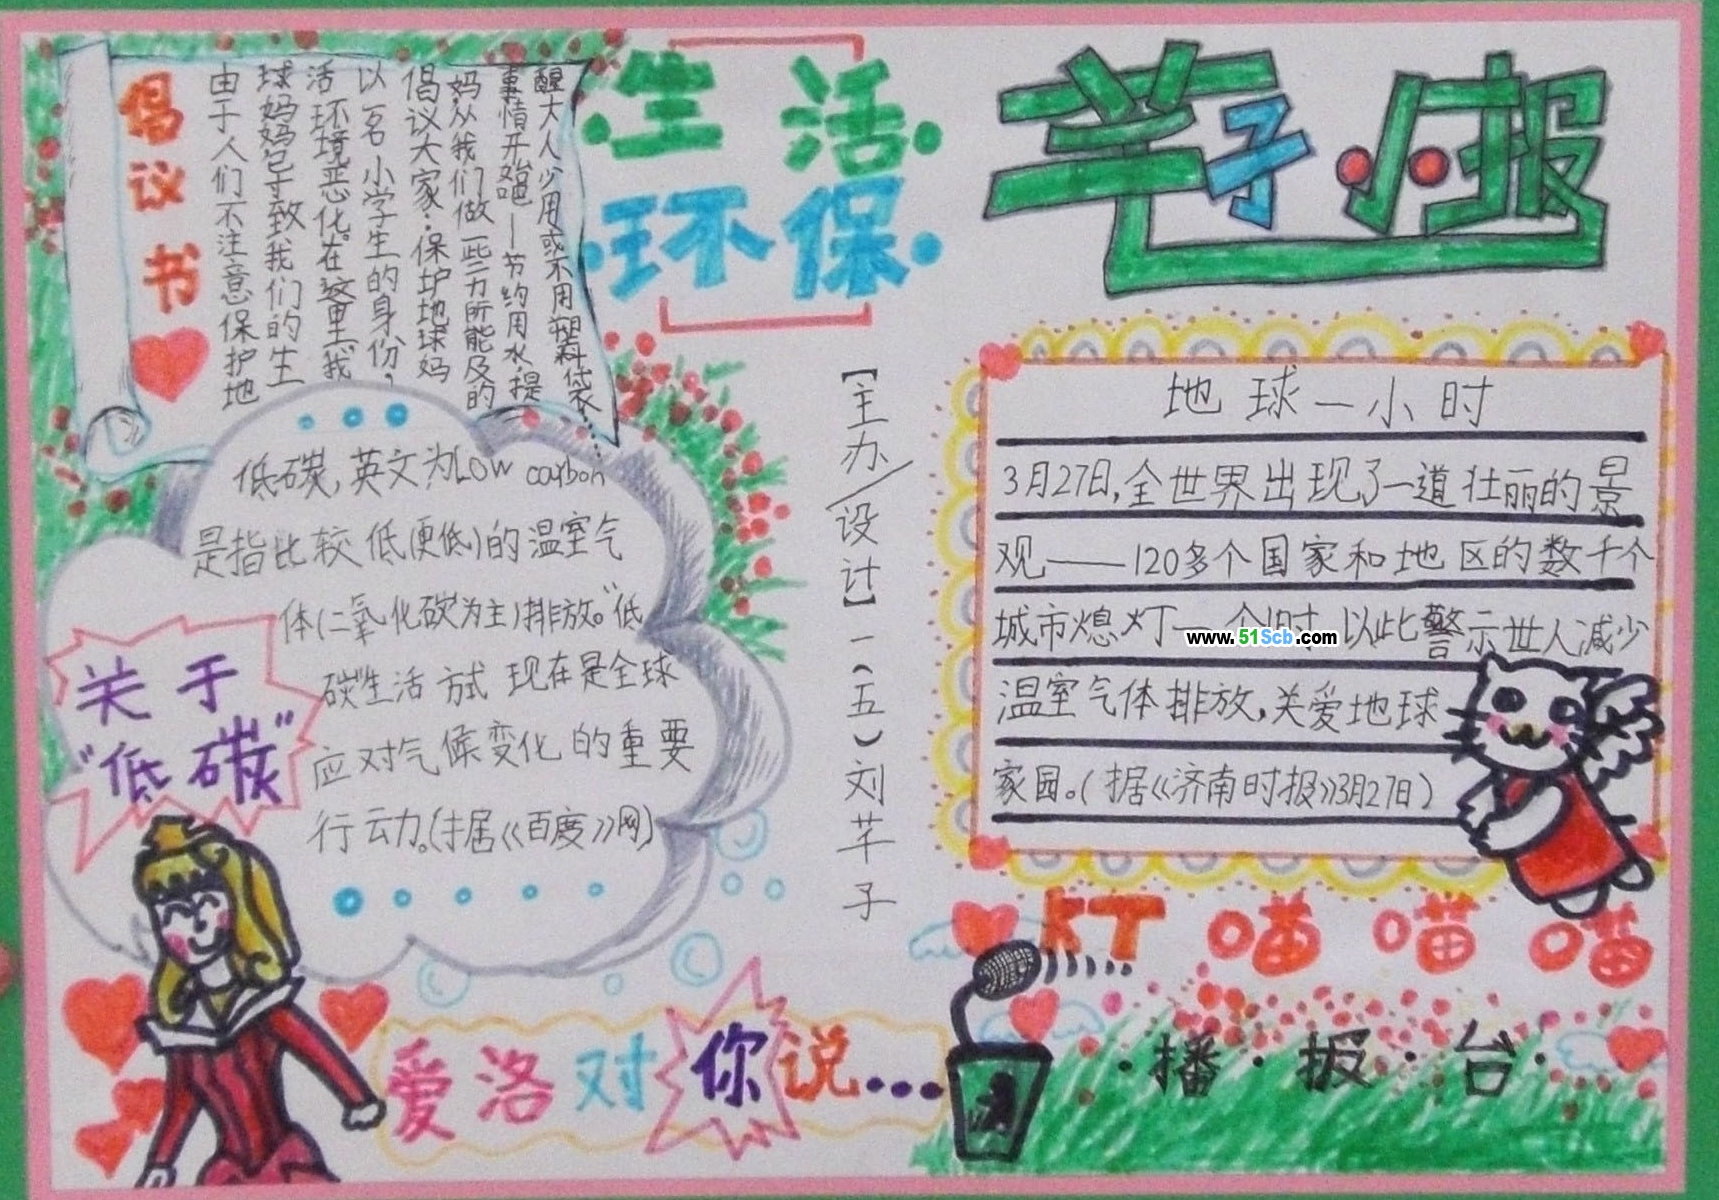 倡议书
由于人们不注意保护地
球妈妈已于致我们的生
活环境恶化。在这里，我
以名小学生的身份，
倡议大家：保护地球妈
妈，从我们做一些力所能及的
事情开始吧——节约用水，提
醒大人少用或不用塑料袋……
生活
环保
芊子小报
低碳，英文为Low carbon
是指比较低(更低)的温室气
体(二氧化碳为主)排放。“低
碳”生活方式 现在是全球
应对气候变化的重要
行动。(据《百度》网)
关于
“低碳”
【主办/设计】一（五）刘芊子
地球一小时
3月27日，全世界出现了一道壮丽的景
观——120多个国家和地区的数千个
城市熄灯一个小时，以此警示世人减少
温室气体排放，关爱地球
家园。(据《济南时报》3月27日)
www.51Scb.com
KT 喵喵喵
·播·报·台·
爱洛对你说...